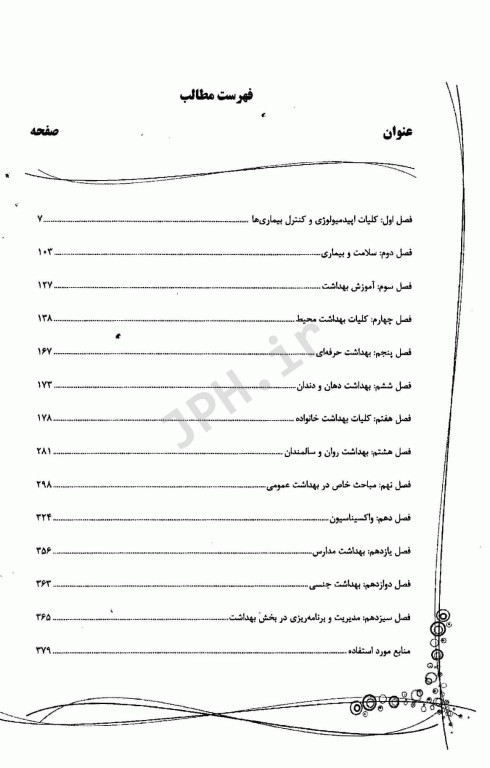 فهرست مطالب
عنوان صفحه
فصل اول: کلیات اپیدمیولوژی و کنترل بیماری‌ها ........ ۷
فصل دوم: سلامت و بیماری ........ ۱۰۳
فصل سوم: آموزش بهداشت ........ ۱۲۷
فصل چهارم: کلیات بهداشت محیط ........ ۱۳۸
فصل پنجم: بهداشت حرفه‌ای ........ ۱۶۷
فصل ششم: بهداشت دهان و دندان ........ ۱۷۳
فصل هفتم: کلیات بهداشت خانواده ........ ۱۷۸
فصل هشتم: بهداشت روان و سالمندان ........ ۲۸۱
فصل نهم: مباحث خاص در بهداشت عمومی ........ ۲۹۸
فصل دهم: واکسیناسیون ........ ۳۲۴
فصل یازدهم: بهداشت مدارس ........ ۳۵۶
فصل دوازدهم: بهداشت جنسی ........ ۳۶۳
فصل سیزدهم: مدیریت و برنامه‌ریزی در بخش بهداشت ........ ۳۶۵
منابع مورد استفاده ........ ۳۷۹
JPH.ir